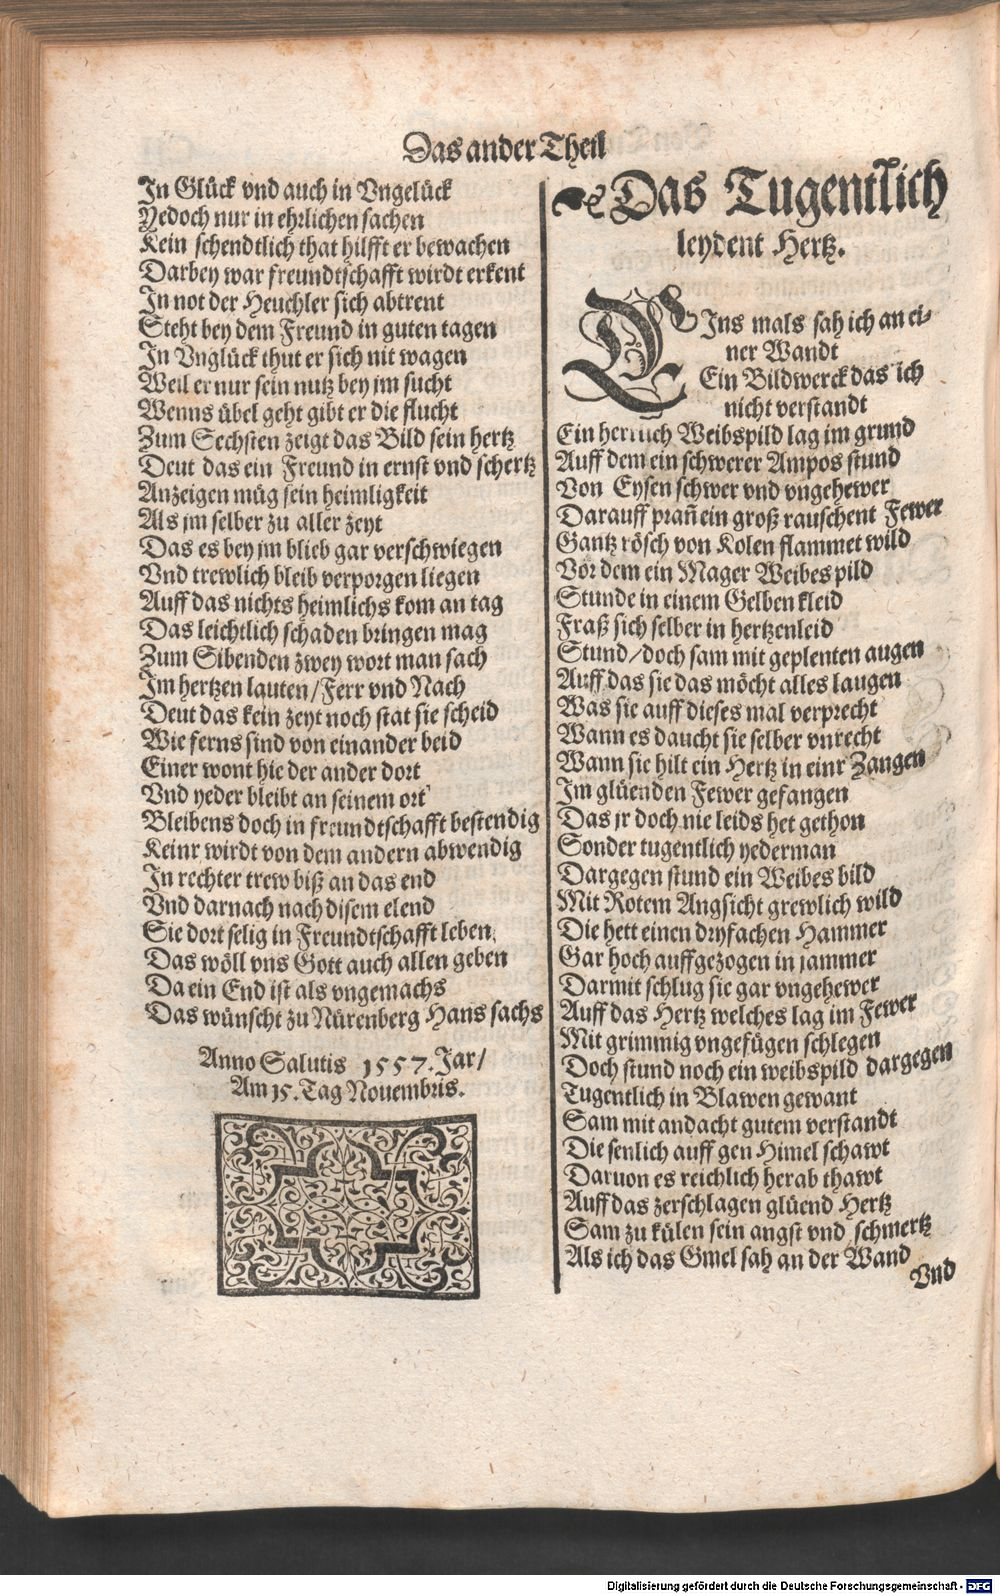 Das ander Theil
In Glück vnd auch in Vngelück
Yedoch nur in ehrlichen sachen
Kein schendtlich that hilfft er bewachen
Darbey war freundtschafft wirdt erkent
In not der Heuchler sich abtrent
Steht bey dem Freund in guten tagen
In Vnglück thut er sich nit wagen
Weil er nur sein nutz bey jm sucht
Wenns übel geht gibt er die flucht
Zum Sechsten zeigt das Bild sein hertz
Deut das ein Freund in ernst vnd schertz
Anzeigen müg sein heimligkeit
Als jm selber zu aller zeyt
Das es bey jm blieb gar verschwiegen
Vnd trewlich bleib verporgen liegen
Auff das nichts heimlichs kom an tag
Das leichtlich schaden bringen mag
Zum Sibenden zwey wort man sach
Im hertzen lauten/Ferr vnd Nach
Deut das kein zeyt noch stat sie scheid
Wie ferns sind von einander beid
Einer wont hie der ander dort
Vnd yeder bleibt an seinem ort
Bleibens doch in freundtschafft bestendig
Keinr wirdt von dem andern abwendig
In rechter trew biß an das end
Vnd darnach nach disem elend
Sie dort selig in Freundtschafft leben
Das wöll vns Gott auch allen geben
Da ein End ist als vngemachs
Das wünscht zu Nürenberg Hans sachs
Anno Salutis 1557. Jar/
Am 15. Tag Nouembris.
Das Tugentlich
leydent Hertz.
EIns mals sah ich an ei-
ner Wandt
Ein Bildwerck das ich
nicht verstandt
Ein herrlich Weibspild lag im grund
Auff dem ein schwerer Ampos stund
Von Eysen schwer vnd vngehewer
Darauff prañ ein groß rauschent Fewer
Gantz rösch von Kolen flammet wild
Vor dem ein Mager Weibes pild
Stunde in einem Gelben kleid
Fraß sich selber in hertzenleid
Stund/doch sam mit geplenten augen
Auff das sie das möcht alles laugen
Was sie auff dieses mal verprecht
Wann es daucht sie selber vnrecht
Wann sie hilt ein Hertz in einr Zangen
Im glüenden Fewer gefangen
Das jr doch nie leids het gethon
Sonder tugentlich yederman
Dargegen stund ein Weibes bild
Mit Rotem Angsicht grewlich wild
Die hett einen dryfachen Hammer
Gar hoch auffgezogen in jammer
Darmit schlug sie gar vngehewer
Auff das Hertz welches lag im Fewer
Mit grimmig vngefügen schlegen
Doch stund noch ein weibspild dargegen
Tugentlich in Blawen gewant
Sam mit andacht gutem verstandt
Die senlich auff gen Himel schawt
Daruon es reichlich herab thawt
Auff das zerschlagen glüend Hertz
Sam zu külen sein angst vnd schmertz
Als ich das Gmel sah an der Wand
Vnd
Digitalisierung gefördert durch die Deutsche Forschungsgemeinschaft - DFG